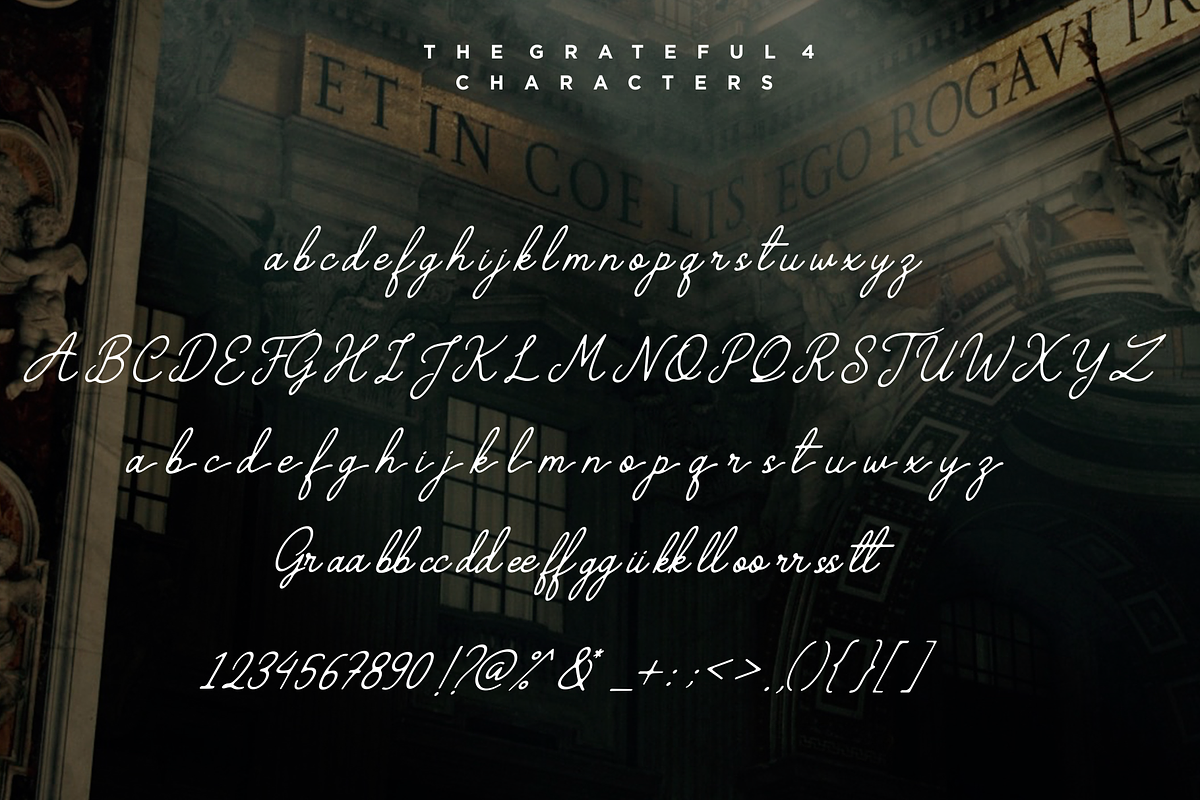 THE GRATEFUL 4
CHARACTERS
ET IN COELIS EGO ROGAVI PR
abcdefghijklmnopqrstuwxyz
ABCDEFGHIJKLMNOPQRSTUWXYZ
abcdefghijklmnopqrstuwxyz
Gr aa bb cc dd ee ff gg ii kk ll oo rr ss tt
1234567890!?@%^&*_+:;<>.,(){}[]